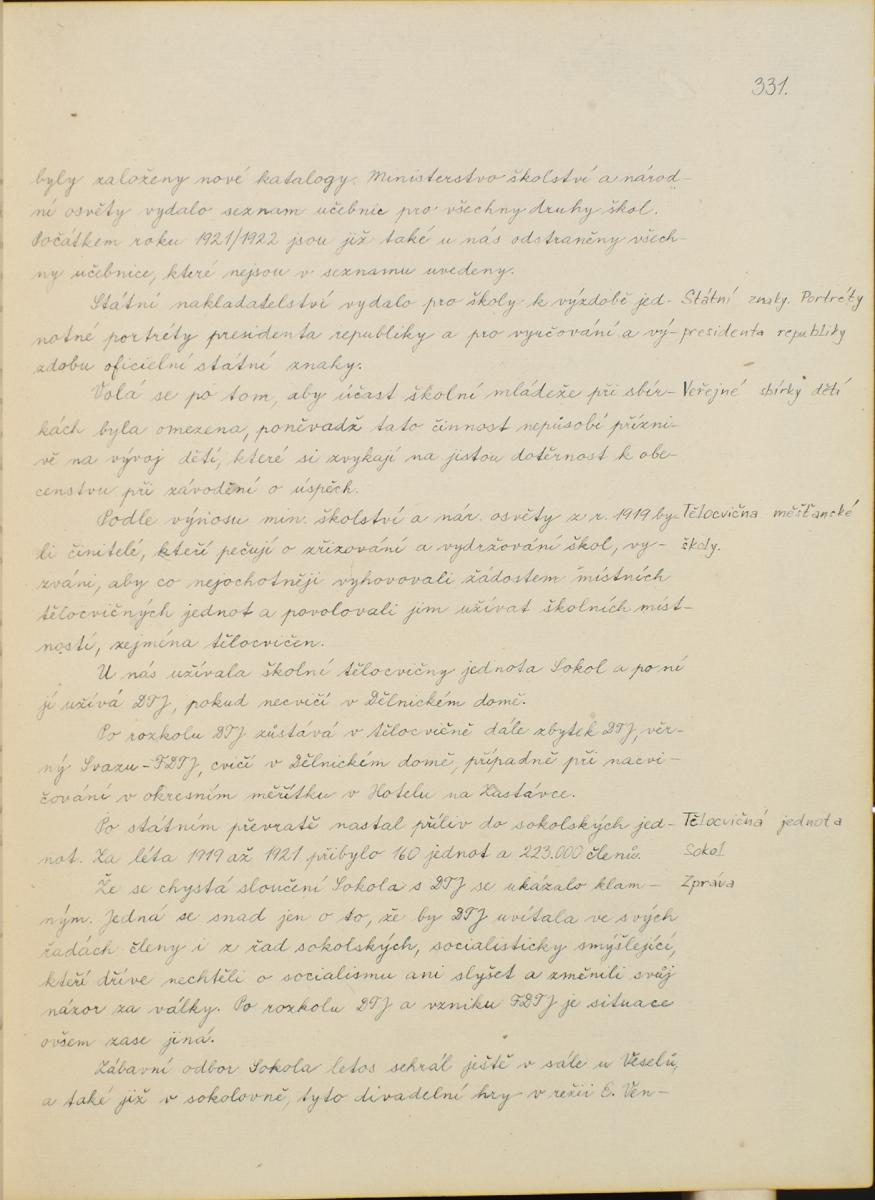 331.
byly založeny nové katalogy. Ministerstvo školství a národ-
ní osvěty vydalo seznam učebnic pro všechny druhy škol.
Počátkem roku 1921/1922 jsou již také u nás odstraněny všech-
ny učebnice, které nejsou v seznamu uvedeny.
Státní nakladatelství vydalo pro školy k výzdobě jed- Státní znaky. Portréty
notné portréty presidenta republiky a pro vyučování a vý- presidenta republiky
zdobu oficielní státní znaky.
Volá se po tom, aby účast školní mládeže při sbír- Veřejné sbírky dětí
kách byla omezena, poněvadž tato činnost nepůsobí přízni-
vě na vývoj dětí, které si zvykají na jistou dotěrnost k obe-
censtvu při závodění o úspěch.
Podle výnosu min. školství a nár. osvěty z r. 1919 by- Tělocvična měšťanské
li činitelé, kteří pečují o zřizování a vydržování škol, vy- školy.
zváni, aby co nejochotněji vyhovovali žádostem místních
tělocvičných jednot a povolovali jim užívat školních míst-
ností, zejména tělocvičen.
U nás užívala školní tělocvičny jednota Sokol a po ní
jí užívá DTJ, pokud necvičí v Dělnickém domě.
Po rozkolu DTJ zůstává v tělocvičně dále zbytek DTJ, věr-
ný Svazu - FDTJ, cvičí v Dělnickém domě, případně při nacvi-
čování v okresním měřítku v Hotelu na Zastávce.
Po státním převratě nastal příliv do sokolských jed- Tělocvičná jednota
not. Za léta 1919 až 1921 přibylo 160 jednot a 223.000 členů. Sokol
Že se chystá sloučení Sokola s DTJ se ukázalo klam- Zpráva
ným. Jedná se snad jen o to, že by DTJ uvítala ve svých
řadách členy i z řad sokolských, socialisticky smýšlející,
kteří dříve nechtěli o socialismu ani slyšet a změnili svůj
názor za války. Po rozkolu DTJ a vzniku FDTJ je situace
ovšem zase jiná.
Zábavní odbor Sokola letos sehrál ještě v sále u Veselů,
a také již v sokolovně, tyto divadelní hry v režii E. Ven-